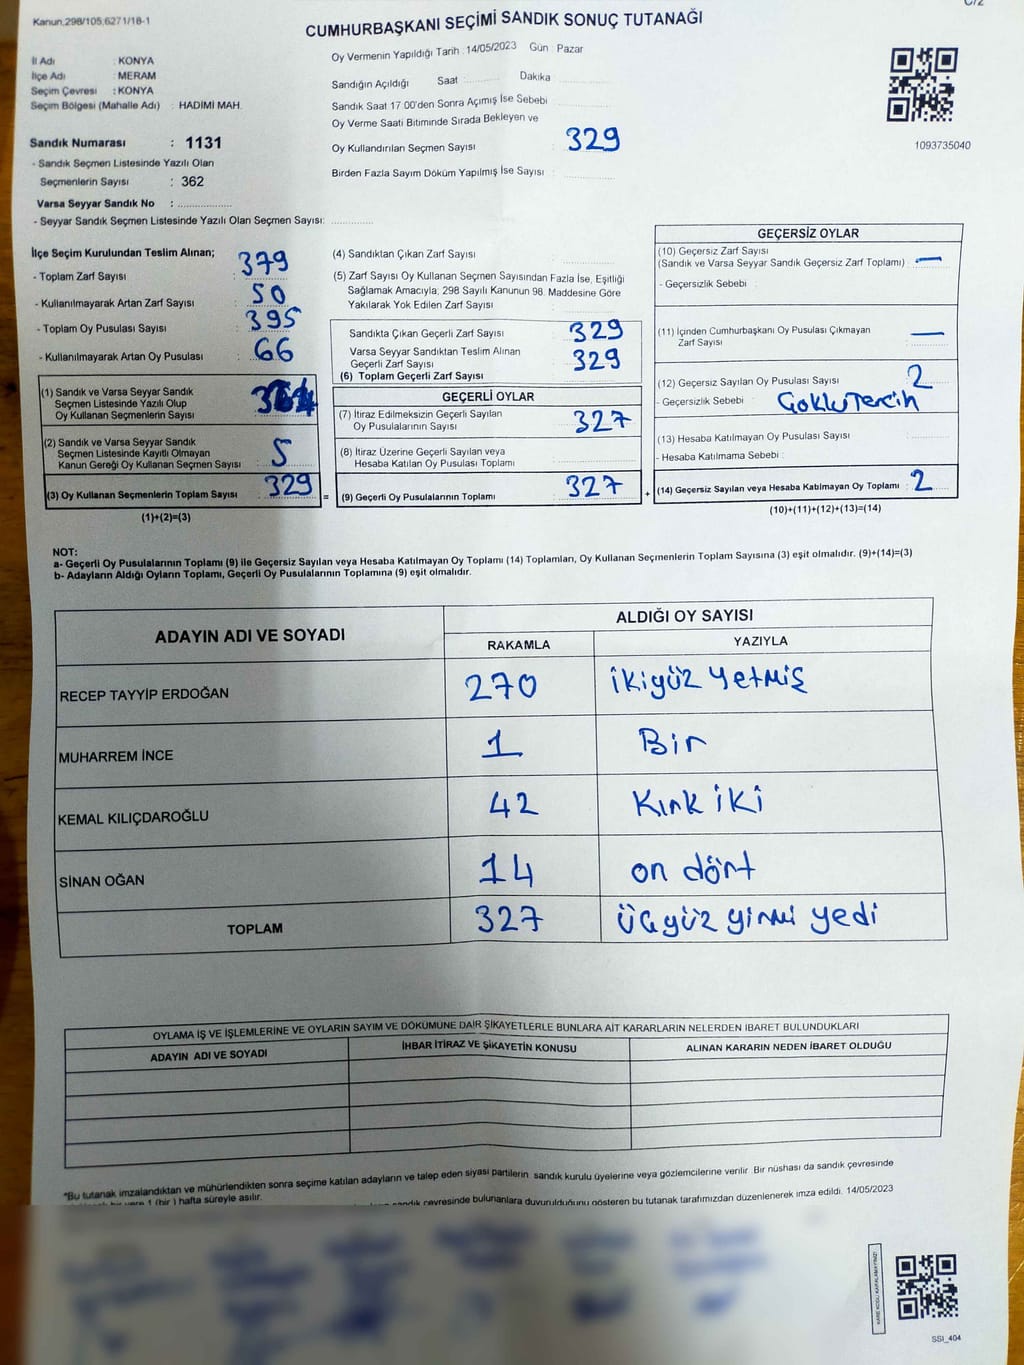 Kanun,298/105,6271/18-1
C/2
CUMHURBAŞKANI SEÇİMİ SANDIK SONUÇ TUTANAĞI
İl Adı : KONYA
İlçe Adı : MERAM
Seçim Çevresi : KONYA
Seçim Bölgesi (Mahalle Adı) : HADİMİ MAH.
Sandık Numarası : 1131
- Sandık Seçmen Listesinde Yazılı Olan
Seçmenlerin Sayısı : 362
Varsa Seyyar Sandık No :
- Seyyar Sandık Seçmen Listesinde Yazılı Olan Seçmen Sayısı:
Oy Vermenin Yapıldığı Tarih : 14/05/2023 Gün : Pazar
Sandığın Açıldığı Saat : Dakika :
Sandık Saat 17:00'den Sonra Açımış İse Sebebi :
Oy Verme Saati Bitiminde Sırada Bekleyen ve
Oy Kullandırılan Seçmen Sayısı : 329
Birden Fazla Sayım Döküm Yapılmış İse Sayısı :
1093735040
İlçe Seçim Kurulundan Teslim Alınan;
- Toplam Zarf Sayısı : 379
- Kullanılmayarak Artan Zarf Sayısı : 50
- Toplam Oy Pusulası Sayısı : 395
- Kullanılmayarak Artan Oy Pusulası : 66
(1) Sandık ve Varsa Seyyar Sandık
Seçmen Listesinde Yazılı Olup
Oy Kullanan Seçmenlerin Sayısı :
(2) Sandık ve Varsa Seyyar Sandık
Seçmen Listesinde Kayıtlı Olmayan
Kanun Gereği Oy Kullanan Seçmen Sayısı : 5
(3) Oy Kullanan Seçmenlerin Toplam Sayısı : 329 =
(1)+(2)=(3)
(4) Sandıktan Çıkan Zarf Sayısı :
(5) Zarf Sayısı Oy Kullanan Seçmen Sayısından Fazla İse, Eşitliği
Sağlamak Amacıyla; 298 Sayılı Kanunun 98. Maddesine Göre
Yakılarak Yok Edilen Zarf Sayısı :
Sandıkta Çıkan Geçerli Zarf Sayısı : 329
Varsa Seyyar Sandıktan Teslim Alınan
Geçerli Zarf Sayısı : 329
(6) Toplam Geçerli Zarf Sayısı :
GEÇERLİ OYLAR
(7) İtiraz Edilmeksizin Geçerli Sayılan
Oy Pusulalarının Sayısı : 327
(8) İtiraz Üzerine Geçerli Sayılan veya
Hesaba Katılan Oy Pusulası Toplamı :
(9) Geçerli Oy Pusulalarının Toplamı : 327 +
GEÇERSİZ OYLAR
(10) Geçersiz Zarf Sayısı
(Sandık ve Varsa Seyyar Sandık Geçersiz Zarf Toplamı) : —
- Geçersizlik Sebebi :
(11) İçinden Cumhurbaşkanı Oy Pusulası Çıkmayan
Zarf Sayısı : —
(12) Geçersiz Sayılan Oy Pusulası Sayısı : 2
- Geçersizlik Sebebi : Çoklu Tercih
(13) Hesaba Katılmayan Oy Pusulası Sayısı :
- Hesaba Katılmama Sebebi :
(14) Geçersiz Sayılan veya Hesaba Katılmayan Oy Toplamı : 2
(10)+(11)+(12)+(13)=(14)
NOT:
a- Geçerli Oy Pusulalarının Toplamı (9) ile Geçersiz Sayılan veya Hesaba Katılmayan Oy Toplamı (14) Toplamları, Oy Kullanan Seçmenlerin Toplam Sayısına (3) eşit olmalıdır. (9)+(14)=(3)
b- Adayların Aldığı Oyların Toplamı, Geçerli Oy Pusulalarının Toplamına (9) eşit olmalıdır.
ADAYIN ADI VE SOYADI
ALDIĞI OY SAYISI
RAKAMLA YAZIYLA
RECEP TAYYİP ERDOĞAN 270 ikiyüz yetmiş
MUHARREM İNCE 1 Bir
KEMAL KILIÇDAROĞLU 42 Kırk iki
SİNAN OĞAN 14 on dört
TOPLAM 327 üçyüz yirmi yedi
OYLAMA İŞ VE İŞLEMLERİNE VE OYLARIN SAYIM VE DÖKÜMÜNE DAİR ŞİKAYETLERLE BUNLARA AİT KARARLARIN NELERDEN İBARET BULUNDUKLARI
ADAYIN ADI VE SOYADI İHBAR İTİRAZ VE ŞİKAYETİN KONUSU ALINAN KARARIN NEDEN İBARET OLDUĞU
*Bu tutanak imzalandıktan ve mühürlendikten sonra seçime katılan adayların ve talep eden siyasi partilerin sandık kurulu üyelerine veya gözlemcilerine verilir. Bir nüshası da sandık çevresinde
bir yere 1 (bir) hafta süreyle asılır.
sandık çevresinde bulunanlara duyurulduğunu gösteren bu tutanak tarafımızdan düzenlenerek imza edildi. 14/05/2023
KARE KODU KARALAMAYINIZ!
SSI_404